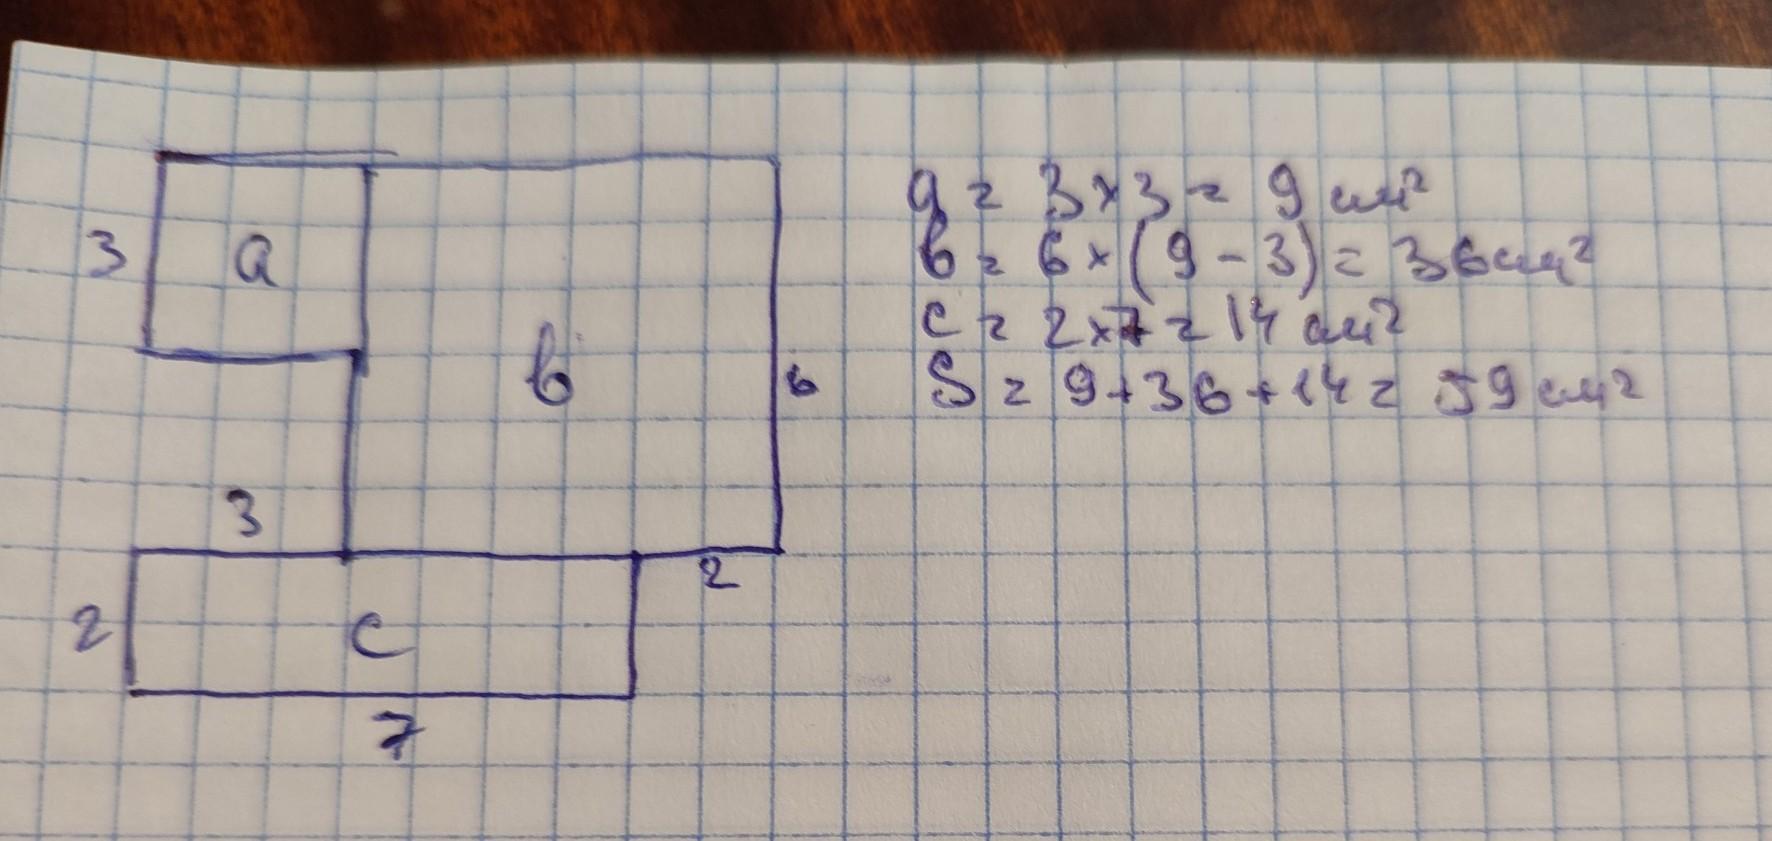 3
a
в
6
3
2
2
c
7
a = 3 × 3 = 9 см²
в = 6 × (9 - 3) = 36 см²
c = 2 × 7 = 14 см²
S = 9 + 36 + 14 = 59 см²